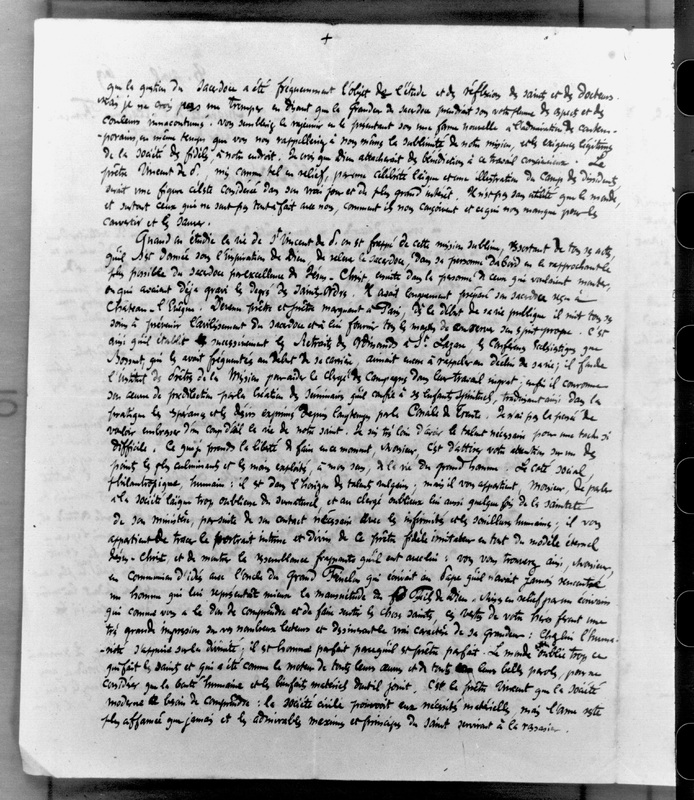 +
que la question du Sacerdoce a été fréquemment l'objet de l'étude et des réflexions des saints et des docteurs.
Mais je ne crois pas me tromper en disant que la grandeur du sacerdoce prendrait sous votre plume des aspects et des
couleurs : vous sembleriez le rajeunir en le présentant sous une forme nouvelle à l'admiration des contem-
porains, en même temps que vous nous rappelleriez à nous même la sublimité de notre mission, et les exigences légitimes
de la société des fidèles à notre endroit. Je crois que Dieu attacherait des bénédictions à ce travail consciencieux. Le
prêtre Vincent de P., mis comme tel en relief, par une célébrité laïque et une illustration du Camp des dissidents,
serait une figure céleste considérée dans son vrai jour et du plus grand intérêt. Il n'est pas sans utilité que le monde,
et surtout ceux qui ne sont pas tout à fait avec nous, comment ils nous conçoivent et ce qui nous manque pour les
convertir et les sauver.
Quand on étudie la vie de St Vincent de P. on est frappé de cette mission sublime, ressortant de tous ses actes,
qu'il s'est donnée sous l'inspiration de Dieu, de relever le sacerdoce dans sa personne d'abord en le rapprochant le
plus possible du sacerdoce par excellence de Jésus-Christ, ensuite dans la personne de ceux qui voulaient monter,
ou qui avaient déjà gravi les degrés des Saints Ordres. Il avait longuement préparé son sacerdoce reçu à
Château-l'Evêque. Devenu prêtre et prêtre marquant à Paris, dès le début de sa vie publique il mit tous ses
soins à prévenir l'avilissement du Sacerdoce et à lui fournir tous les moyens de conserver son esprit propre. C'est
ainsi qu'il établit successivement les Retraites des Ordinands à St Lazare, les conférences Ecclésiastiques que
Bossuet, qui les avait fréquentées au début de sa carrière, aimait encore à rappeler au déclin de sa vie ; il fonde
l'Institut des Prêtres de la Mission pour aider le Clergé des Campagnes dans leur travail ingrat ; enfin il couronne
son œuvre de prédilection par la création des Séminaires qu'il confie à ses enfants spirituels, traduisant ainsi dans la
pratique les espérances et les désirs exprimés depuis longtemps par le Concile de Trente. Je n'ai pas la pensée de
vouloir embrasser d'un coup d'œil la vie de notre saint. Je suis très loin d'avoir le talent nécessaire pour une tache si
difficile. Ce que je prends la liberté de faire en ce moment, Monsieur, c'est d'attirer votre attention sur un des
points les plus culminants et les moins exploités, à mon sens, de la vie du grand homme. Le côté social,
philantropique, humain : il est dans l'horizon des talents vulgaires ; mais il vous appartient, Monsieur, de parler
à la société laïque trop oublieuse du surnaturel, et au clergé oublieux lui aussi quelque fois de la sainteté
de son ministère, par suite de son contact nécessaire avec les infirmités et les souillures humaines ; il vous
appartient de tracer le portrait intime et divin de ce prêtre fidèle imitateur en tout du modèle éternel
Jésus-Christ, et de montrer la ressemblance frappante qu'il eut avec lui : vous vous trouverez ainsi, Monsieur,
en communion d'idées avec l'oncle du Grand Fénelon qui écrivait au Pape qu'il n'avait jamais rencontré
un homme qui lui représentât mieux la mansuétude du Fils de Dieu. Mises en relief par un écrivain
qui comme vous a le don de comprendre et de faire sentir les choses saintes, ces vertus de votre héros feront une
très grande impression sur vos nombreux lecteurs et dessineront le vrai caractère de sa grandeur : Chez lui l'huma-
nité s'appuie sur la divinité ; il est homme parfait parce qu'il est prêtre parfait. Le monde oublie trop ce
qui fait les saints et qui a été comme le moteur de toutes leurs œuvres et de toutes leurs belles paroles, pour ne
considérer que la bonté humaine et les bienfaits matériels dont il jouit. C'est le prêtre Vincent que la société
moderne a besoin de comprendre : la société civile pourvoit aux nécessités matérielles, mais l'âme reste
plus affamée que jamais et les admirables maximes et principes du saint serviront à la rassasier.